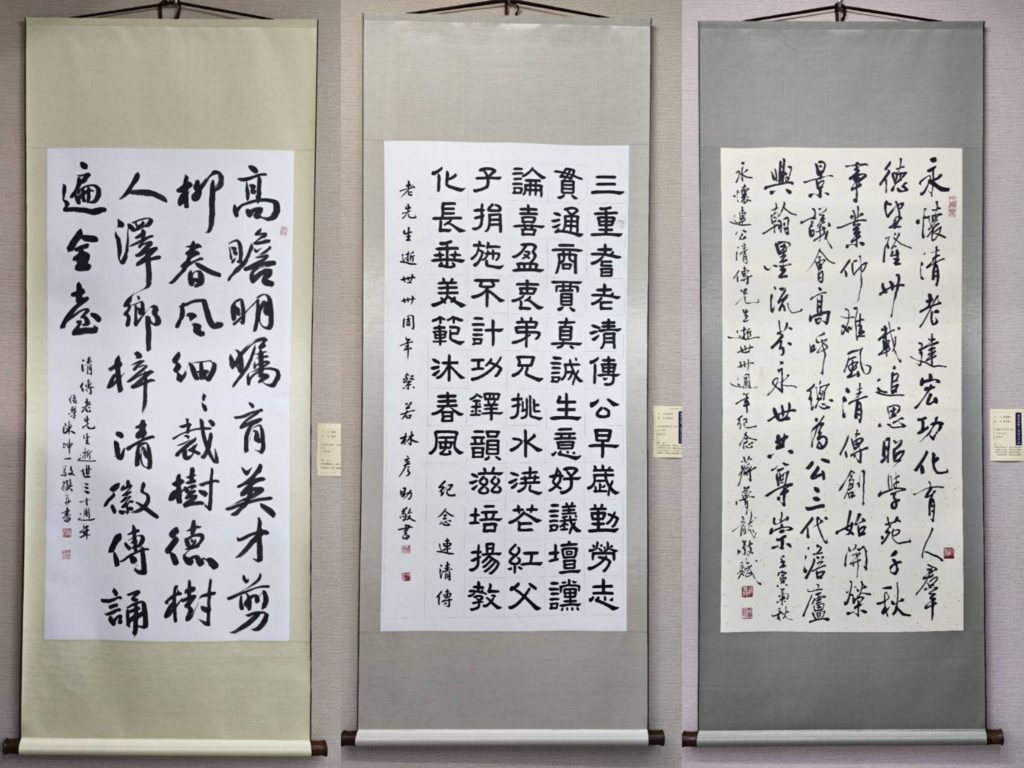 高瞻明矚育英才剪
柳春風細〻裁樹德樹
人澤鄉梓清徽傳誦
遍全臺
清傳老先生逝世三十週年
陳坤一敬撰并書
三重耆老清傳公早歲勤勞志
貫通商賈真誠生意好議壇讜
論喜盈衷弟兄挑水澆花紅父
子捐施不計功鐸韻滋培揚教
化長垂美範沐春風
紀念連清傳
老先生逝世卅周年
若林彥助敬書
永懷清老建宏功化育人羣
德望隆卅載追思昭學苑千秋
事業仰雄風清傳創始開榮
景議會高呼總為公三代澹廬
興翰墨流芬永世共尊崇
壬寅孟秋
永懷連公清傳先生逝世卅週年紀念